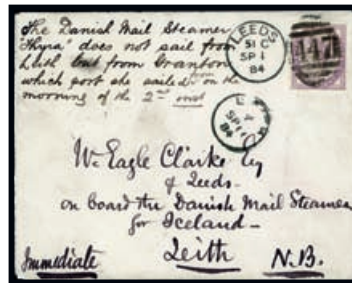 The Danish Mail Steamer
"Thyra" does not sail from
Leith but from Granton
which port she sailed from on the
morning of the 2nd inst
LEEDS
51 C
SP 1
84
447
SP
84
Wm Eagle Clarke Esq
of Leeds
on board the Danish Mail Steamer
for Iceland
Immediate
Leith
N.B.